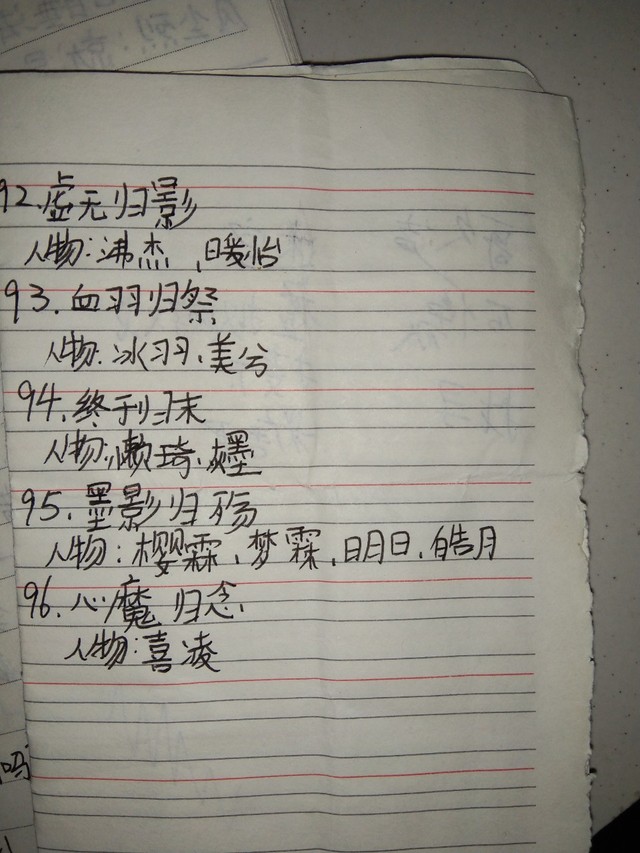 92.虚无归影
人物:沸杰、暖怡
93.血羽归祭
人物:冰羽、美兮
94.终于归末
人物:懒琦、墨
95.墨影归殇
人物:樱霖、梦霖、明日、皓月
96.心魔归念
人物:喜凌
吗